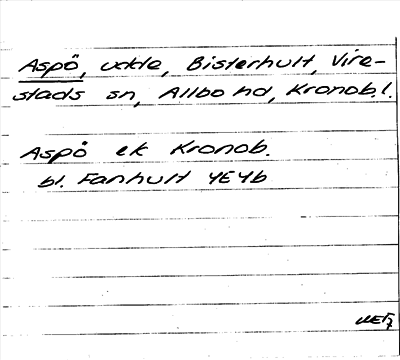 Aspö, udde, Bisterhult, Vire-
stads sn, Allbo hd, Kronob.l.
Aspö ek Kronob.
bl. Fanhult 4E4b